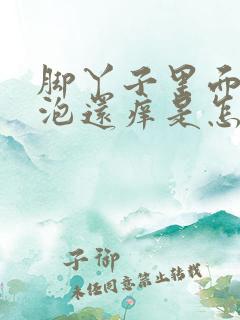 脚丫子里面
泡還痒是怎
子御
未经同意禁止转载